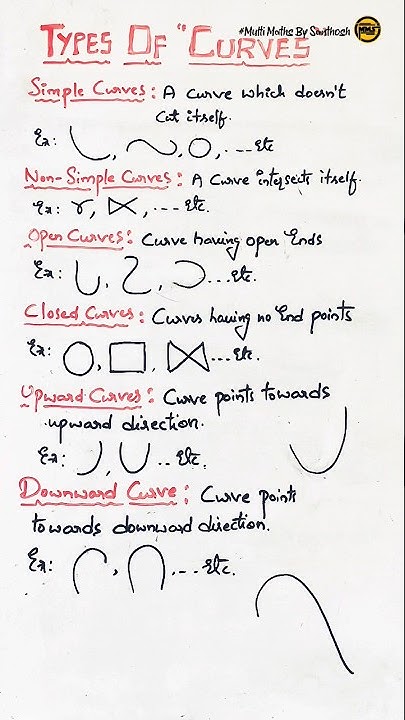 #Multi Maths By Santhosh
TYPES OF "CURVES
Simple Curves: A curve which doesn't
cut itself.
Ex: , , , ... etc
Non-Simple Curves: A Curve intersects itself.
Ex: , , ... etc.
Open Curves: Curve having open Ends
Ex: , , ... etc.
Closed Curves: Curves having no End points
Ex: , , ... etc.
Upward Curves: Curve points towards
upward direction.
Ex: , .. etc.
Downward Curve: Curve points
towards downward direction.
Ex: , , ... etc.